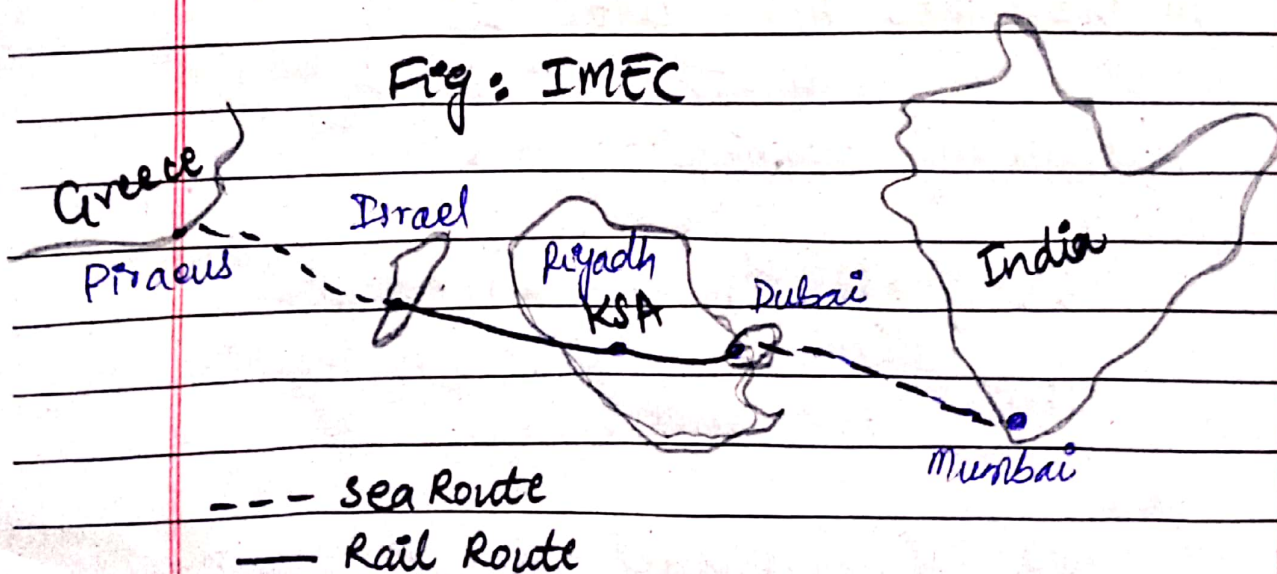 Fig: IMEC
Greece
Israel
Piraeus
Riyadh
KSA
Dubai
India
Mumbai
--- Sea Route
— Rail Route